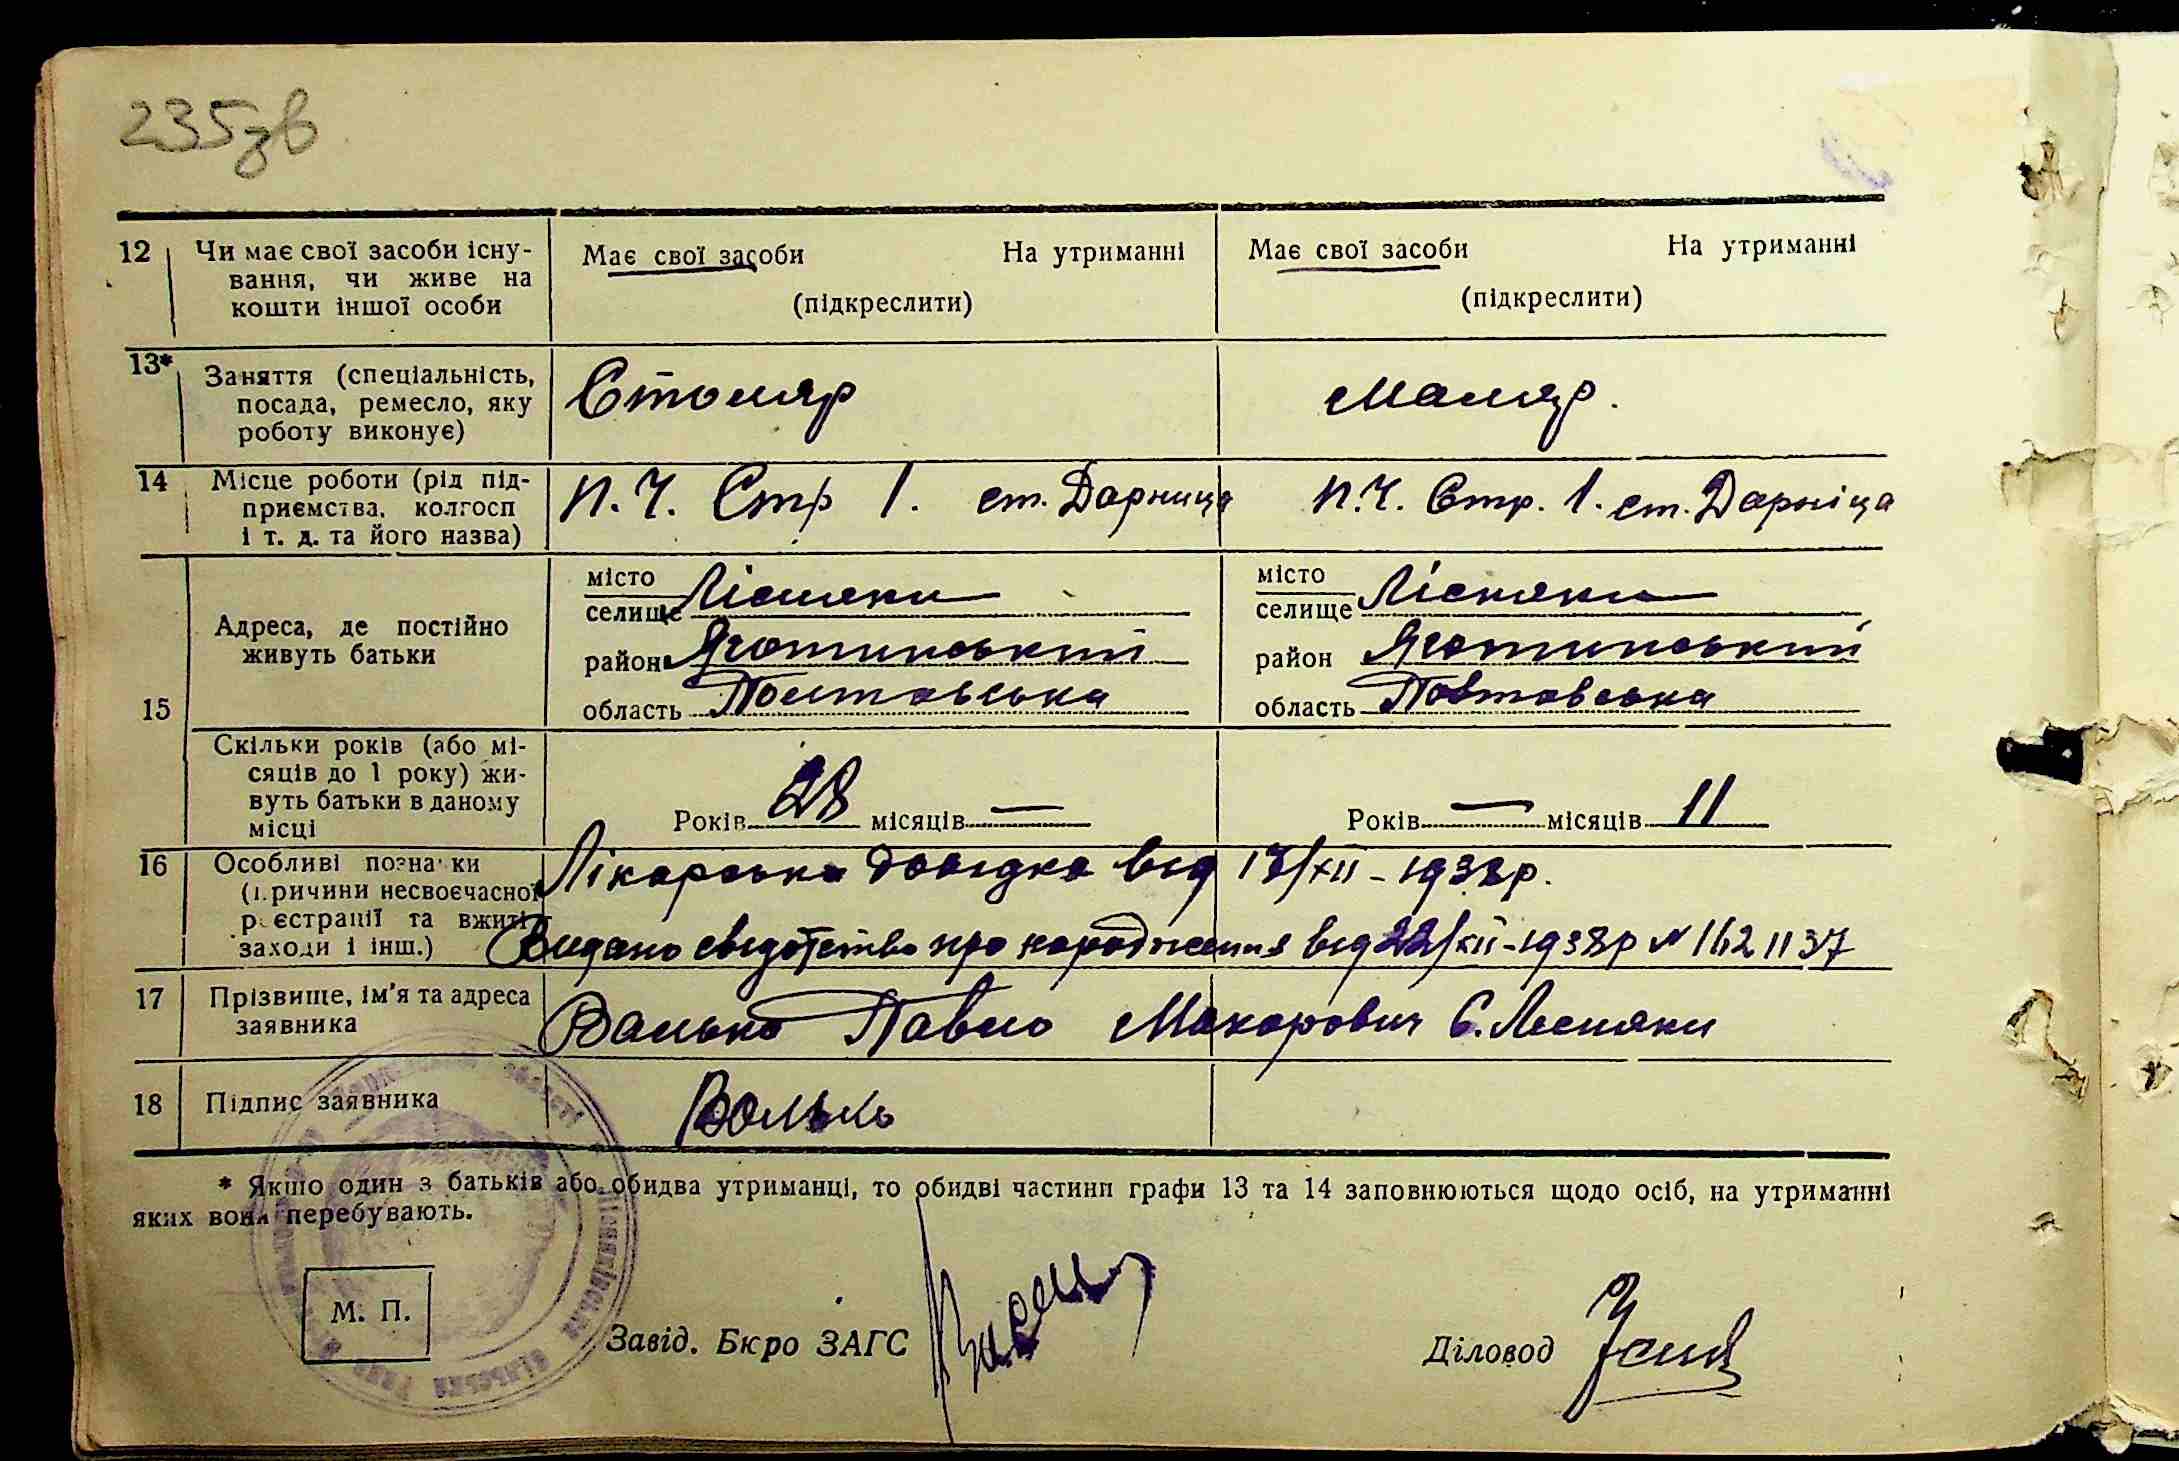 235зв
12 Чи має свої засоби існу- Має свої засоби На утриманні Має свої засоби На утриманні
вання, чи живе на
кошти іншої особи (підкреслити) (підкреслити)
13* Заняття (спеціальність, Столяр Маляр.
посада, ремесло, яку
роботу виконує)
14 Місце роботи (рід під- П.Ч. Стр 1. ст. Дарница П.Ч. Стр. 1. ст. Дарніца
приємства, колгосп
і т. д. та його назва)
15 Адреса, де постійно
живуть батьки
місто
селище Лісняки
район Яготинський
область Полтавська
місто
селище Лісняки
район Яготинський
область Полтавська
Скільки років (або мі-
сяців до 1 року) жи-
вуть батьки в даному
місці
Років 28 місяців — Років — місяців 11
16 Особливі познаки Лікарська довідка від /XII - 1938р.
(причини несвоєчасної
реєстрації та вжиті
заходи і інш.) Видано свідотство про народження від 22/XII-1938р № 1621137
17 Прізвище, ім'я та адреса
заявника
Валько Павло Макарович С. Лесняки
18 Підпис заявника Валько
* Якщо один з батьків або обидва утриманці, то обидві частини графи 13 та 14 заповнюються щодо осіб, на утриманні
яких вони перебувають.
М. П.
Завід. Бюро ЗАГС
Діловод